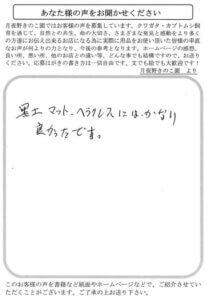 あなた様の声をお聞かせください
月夜野きのこ園ではお客様の声を募集しています。クワガタ・カブトムシ飼
育を通じて、自然との共生、命の大切さ、さまざまな発見と感動をより多く
の方達にお伝え出来るお店になる為に実際に用品をお使い頂いた皆様の率直
なお声が何よりの力となり、今後の参考となります。ホームページの感想、
良い所、悪い所、他のお店との違い等、どんな事でも結構ですので、お送り
ください。応募はがきの書き方は一切自由です。文でも絵でも大歓迎です！
月夜野きのこ園 より
黒土マット、ヘラクレスにはかなり
良かったです。
このお客様の声を書籍など紙面やホームページなどで、ご紹介させていた
だくことがございます。ご了承の上お送り下さい。